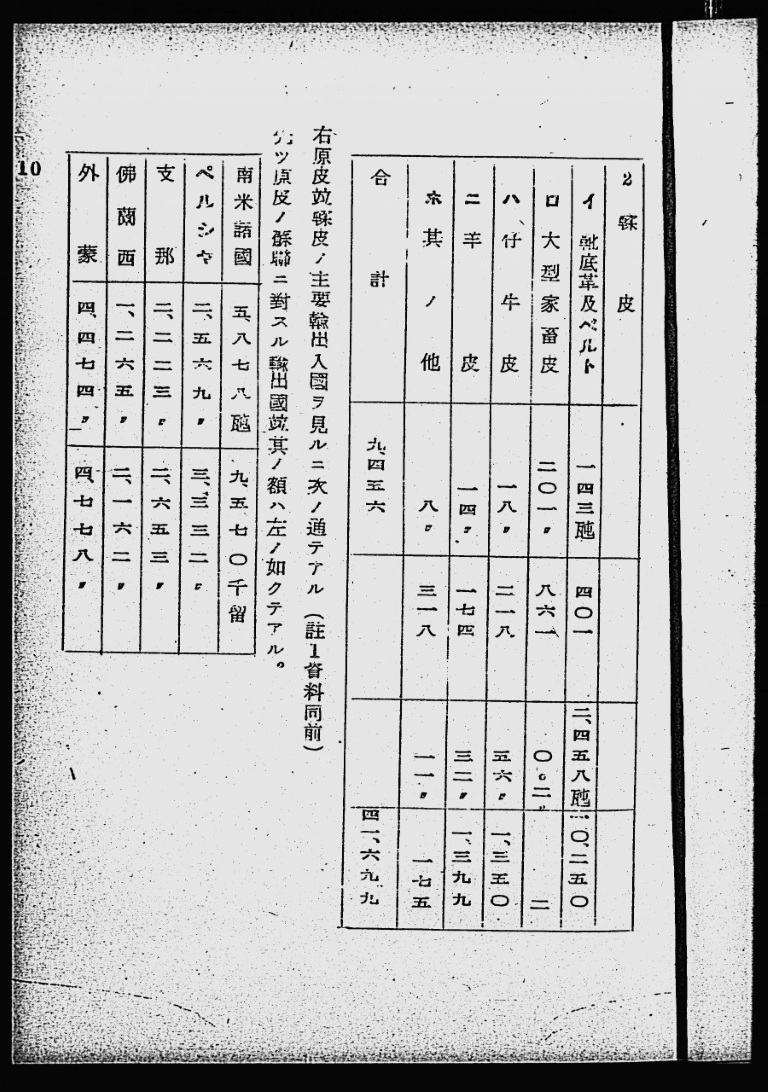 2 鞣皮
イ 靴底革及ベルト 一四三瓲 四〇一 二、四五八瓲 一〇、二五〇
ロ 大型家畜皮 二〇一〃 八六一 〇。二〃 二
ハ 仔牛皮 一八〃 二一八 五六〃 一、三五〇
ニ 羊皮 一四〃 一七四 三二〃 一、三九九
ホ 其ノ他 八〃 三一八 一一〃 一七五
合計 九、四五六 四一、六九九
右原皮竝鞣皮ノ主要輸出入國ヲ見ルニ次ノ通デアル(註1資料同前)
先ツ原皮ノ蘇聯ニ對スル輸出國竝其ノ額ハ左ノ如クデアル。
南米諸國 五、八七八瓲 九、五七〇千留
ペルシヤ 二、五六九〃 三、三三二〃
支那 二、二二三〃 二、六五三〃
佛蘭西 一、二六五〃 二、一六二〃
外蒙 四、四七四〃 四、七七八〃
10